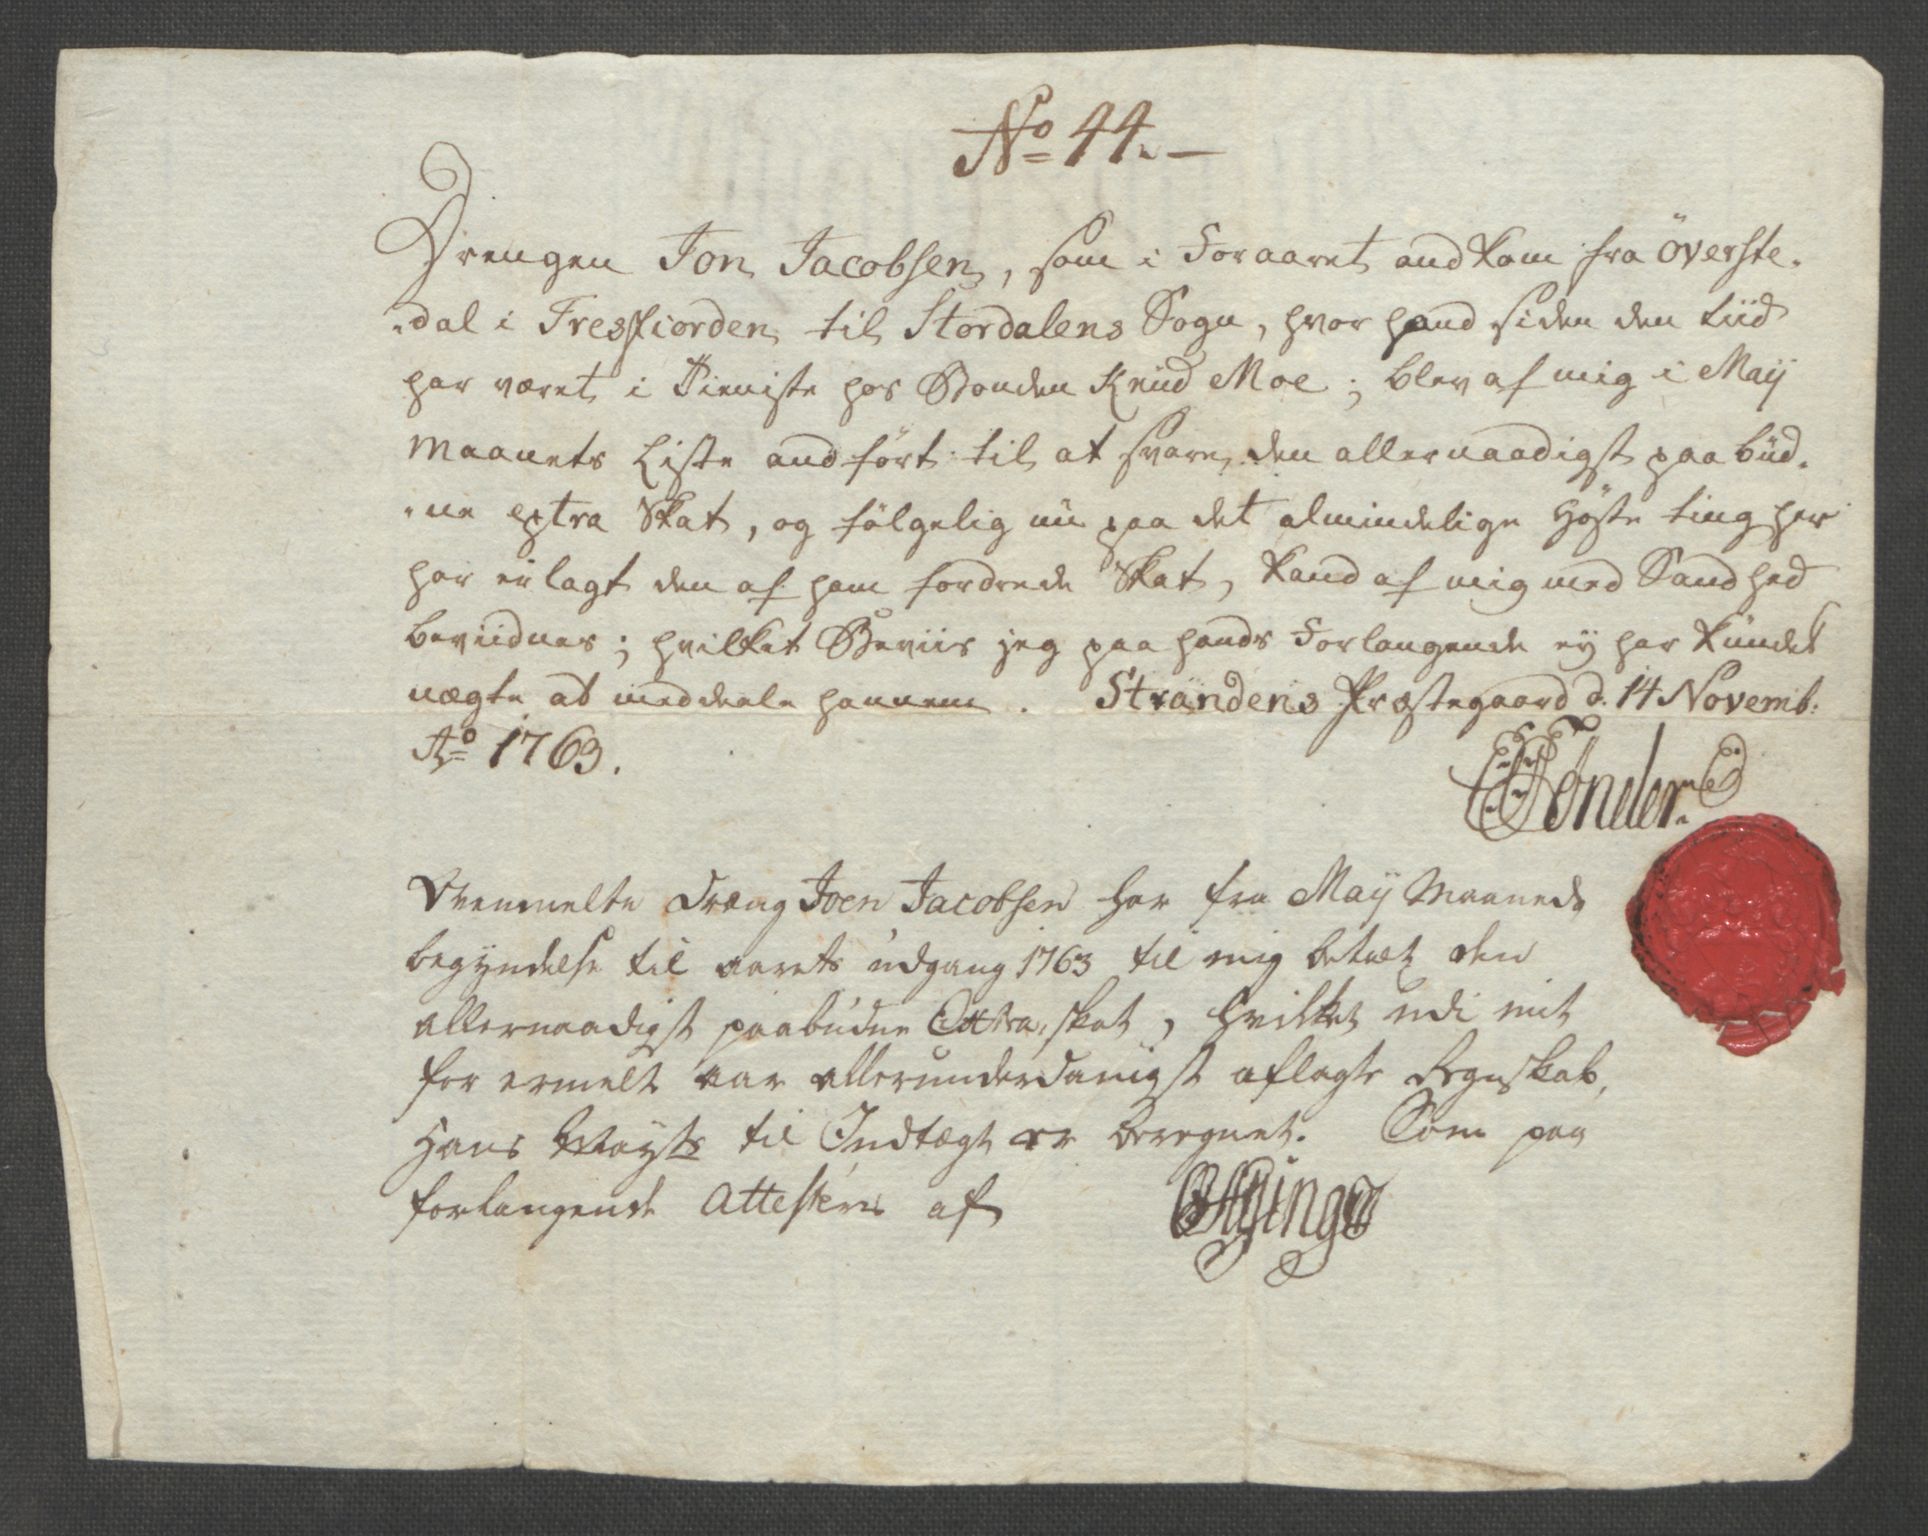 No 44.
Drengen Jon Jacobsen, som i Foraaret andkom fra Överste-
-dal i Fresfiorden til Stordalens Sogn, hvor hand siden den tiid
har været i Tieniste hos Bonden Knud Moe; blev af mig i Maÿ
Maanets Liste andfört til at svare den allernaadigst paabüd-
-ne extra Skat, og fölgelig nu paa det almindelige Höste ting her
har erlagt den af ham fordrede Skat, kand af mig med Sandhed
beviidnes; hvilket Beviis jeg paa hands Forlangende eÿ har kundet
nægte at meddeele hannem. Strandens Præstegaard d. 14 Novemb:
Ao 1763.
Tönder.
Ovenmelte Dreng Joen Jacobsen har fra Maÿ Maaneds
begyndelse til aarets udgang 1763 til mig betalt den
allernaadigst paabudne Extra skat, hvilket udi mit
for ermelt aar allerunderdanigst aflagte Regnskab,
Hans Mayts til Indtægt er beregnet. Som paa
forlangende Attesteres af